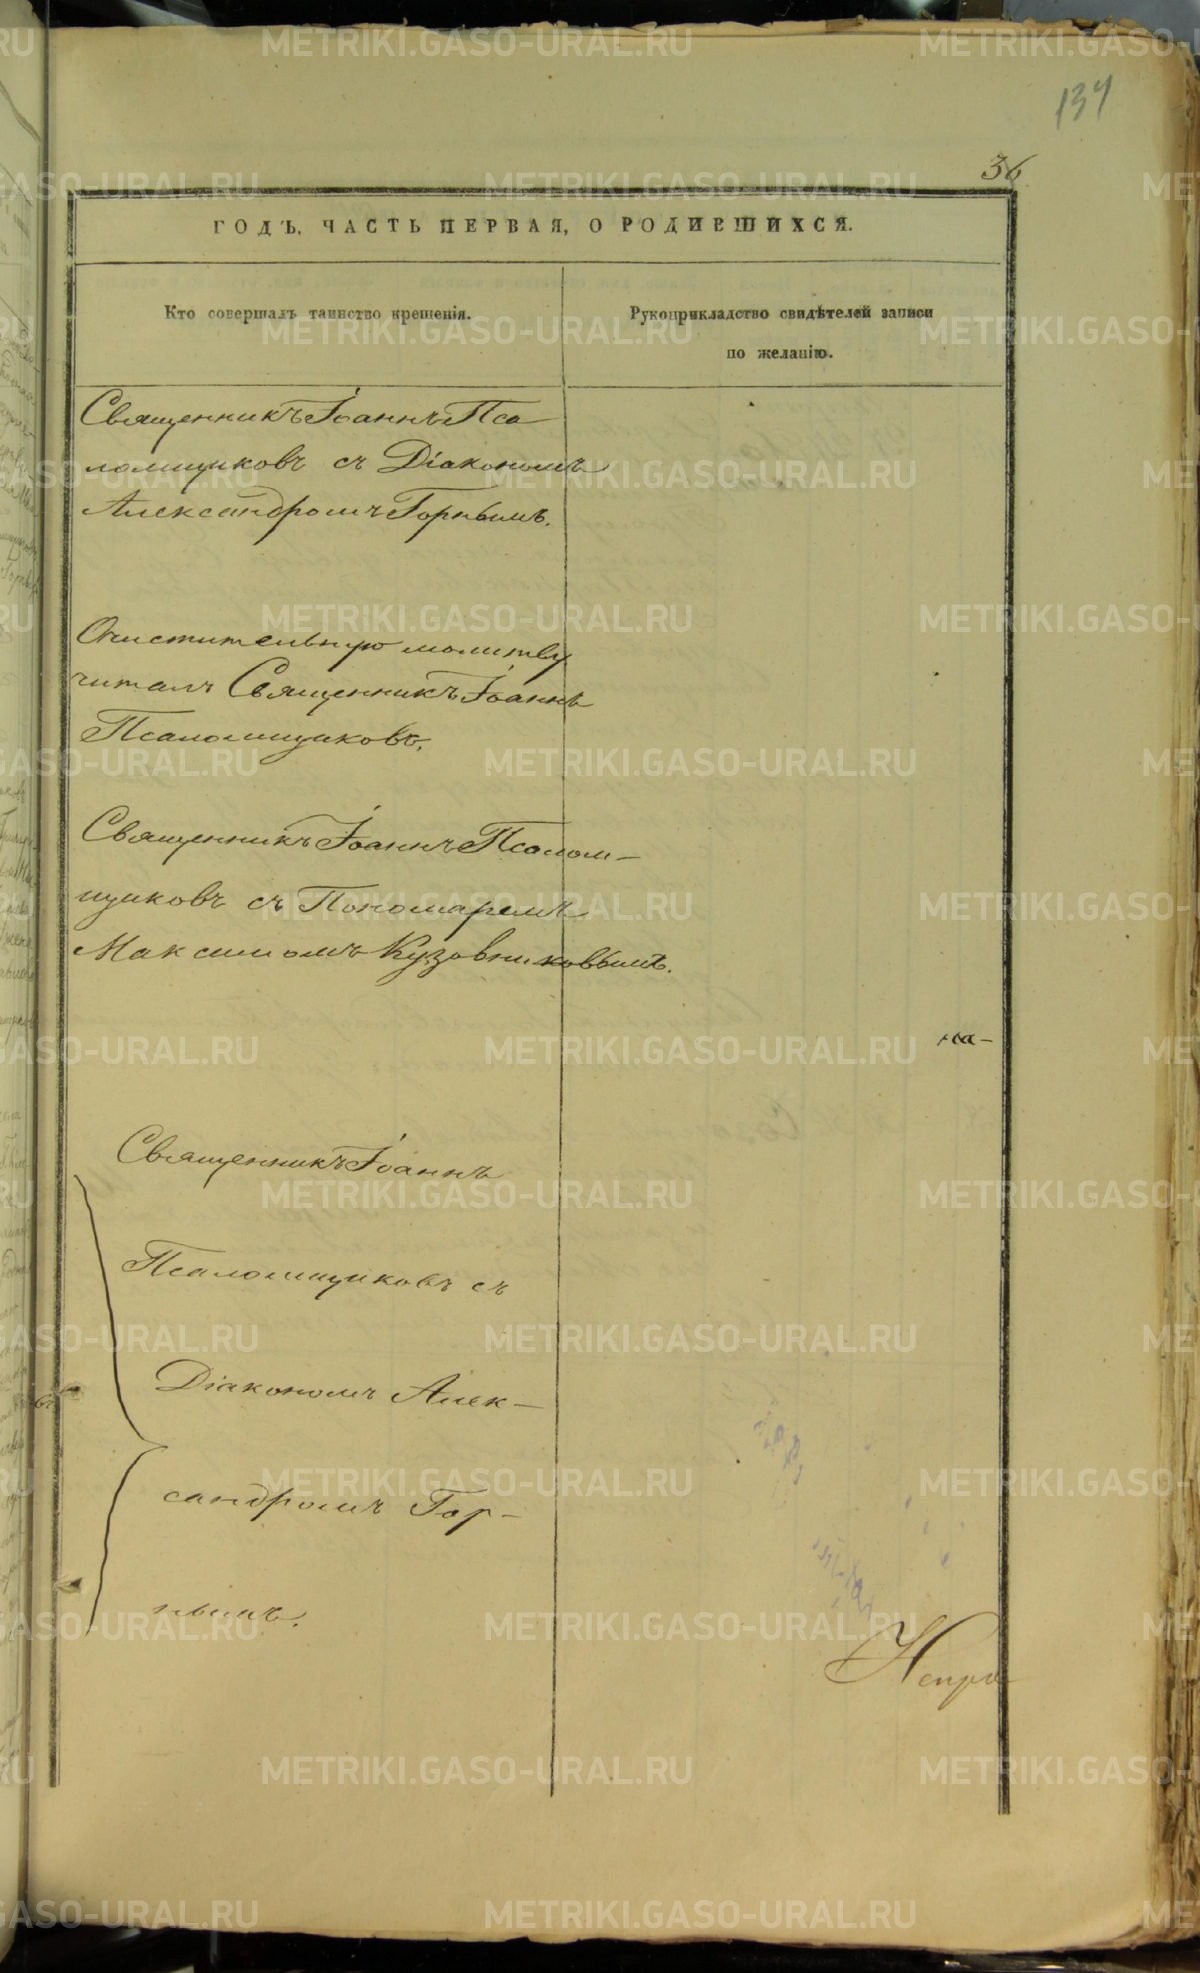 134
36
ГОДЪ. ЧАСТЬ ПЕРВАЯ, О РОДИВШИХСЯ.
Кто совершалъ таинство крещенія.
Рукоприкладство свидѣтелей записи
по желанію.
Священникъ Іоаннъ Пса
ломщиковъ съ Діакономъ
Александромъ Горнымъ.
Очистительную молитву
читалъ Священникъ Іоаннъ
Псаломщиковъ.
Священникъ Іоаннъ Псалом-
щиковъ съ Пономаремъ
Максимомъ Кузовниковымъ.
на-
Священникъ Іоаннъ
Псаломщиковъ съ
Діакономъ Алек-
сандромъ Гор-
нымъ.
METRIKI.GASO-URAL.RU